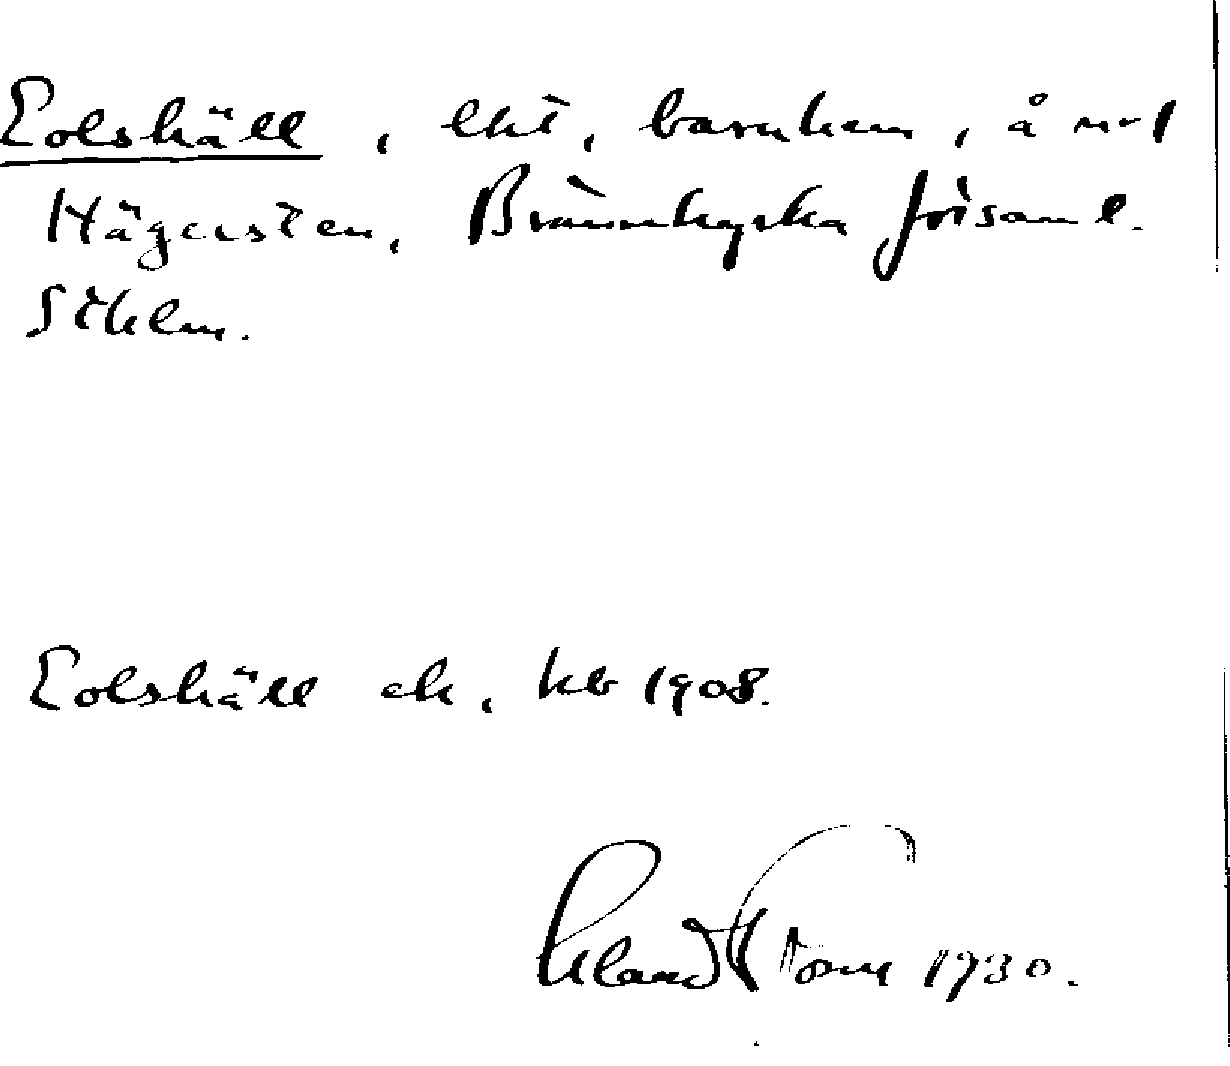 Eolshäll, lht, barnhem, å nr 1
Hägersten, Brännkyrka församl.
Sthlm.
Eolshäll ek, hb 1908.
1930.